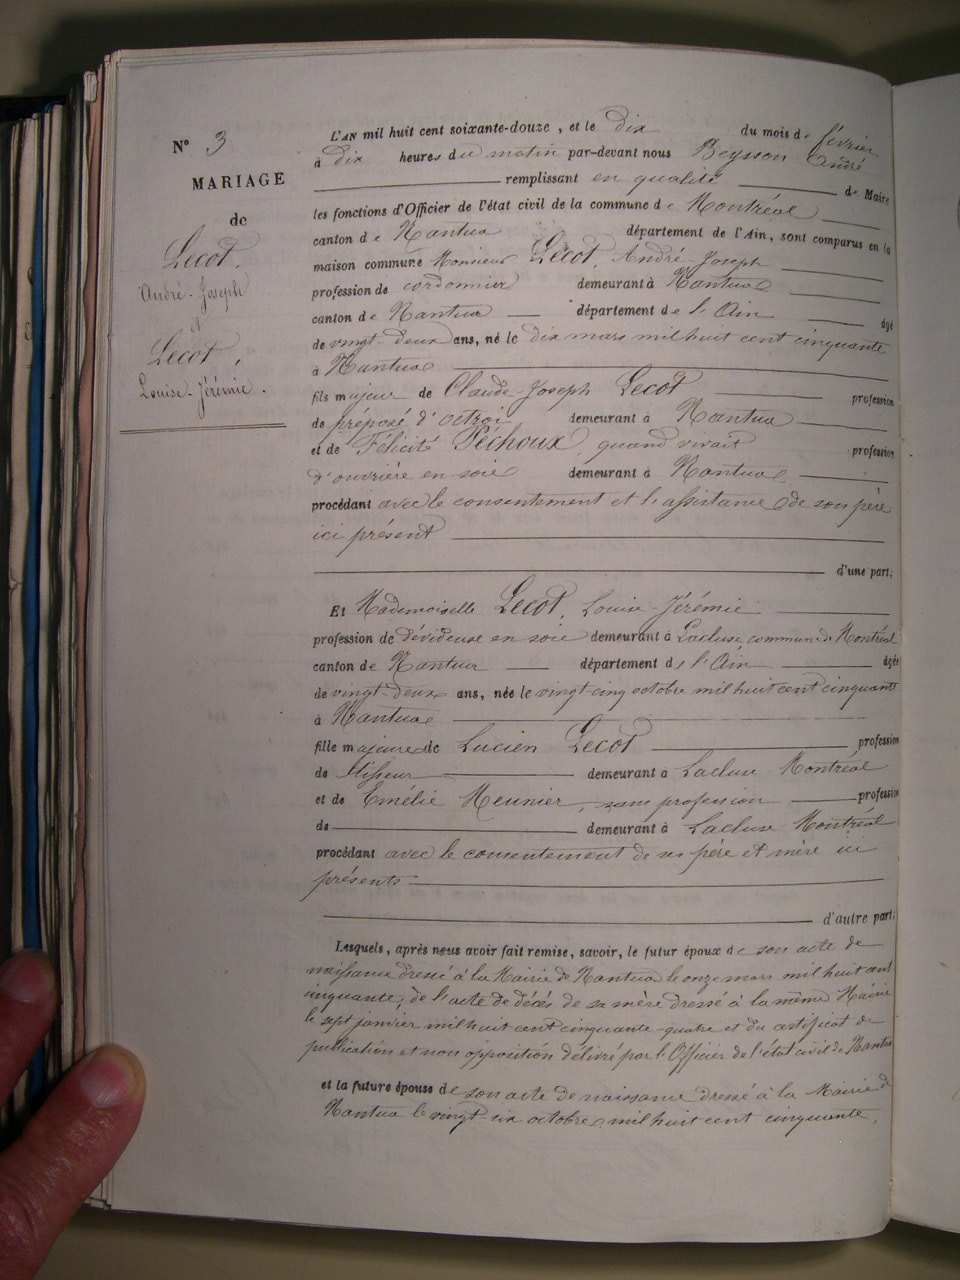 N° 3
MARIAGE
de
Lecot,
André-Joseph
et
Lecot,
Louise-Jérémie.
L'AN mil huit cent soixante-douze, et le dix du mois de février
à dix heures du matin par-devant nous Beysson André
remplissant en qualité de Maire
les fonctions d'Officier de l'état civil de la commune de Montréal
canton de Nantua département de l'Ain, sont comparus en la
maison commune Monsieur Lecot, André-Joseph
profession de cordonnier demeurant à Nantua
canton de Nantua département de l'Ain âgé
de vingt-deux ans, né le dix mars mil huit cent cinquante
à Nantua
fils majeur de Claude-Joseph Lecot profession
de préposé d'octroi demeurant à Nantua
et de Félicité Péchoux, quand vivait profession
d'ouvrière en soie demeurant à Nantua
procédant avec le consentement et l'assistance de son père
ici présent
d'une part;
Et Mademoiselle Lecot, Louise-Jérémie
profession de dévideuse en soie demeurant à Lacluse commune de Montréal
canton de Nantua département de l'Ain âgée
de vingt-deux ans, née le vingt-cinq octobre mil huit cent cinquante
à Nantua
fille majeure de Lucien Lecot profession
de tisseur demeurant à Lacluse Montréal
et de Emélie Meunier, sans profession profession
de demeurant à Lacluse Montréal
procédant avec le consentement de ses père et mère ici
présents
d'autre part;
Lesquels, après nous avoir fait remise, savoir, le futur époux de son acte de
naissance dressé à la Mairie de Nantua le onze mars mil huit cent
cinquante, de l'acte de décès de sa mère dressé à la même Mairie
le sept janvier mil huit cent cinquante-quatre et du certificat de
publication et non opposition délivré par l'Officier de l'état civil de Nantua
et la future épouse de son acte de naissance dressé à la Mairie de
Nantua le vingt-six octobre mil huit cent cinquante,